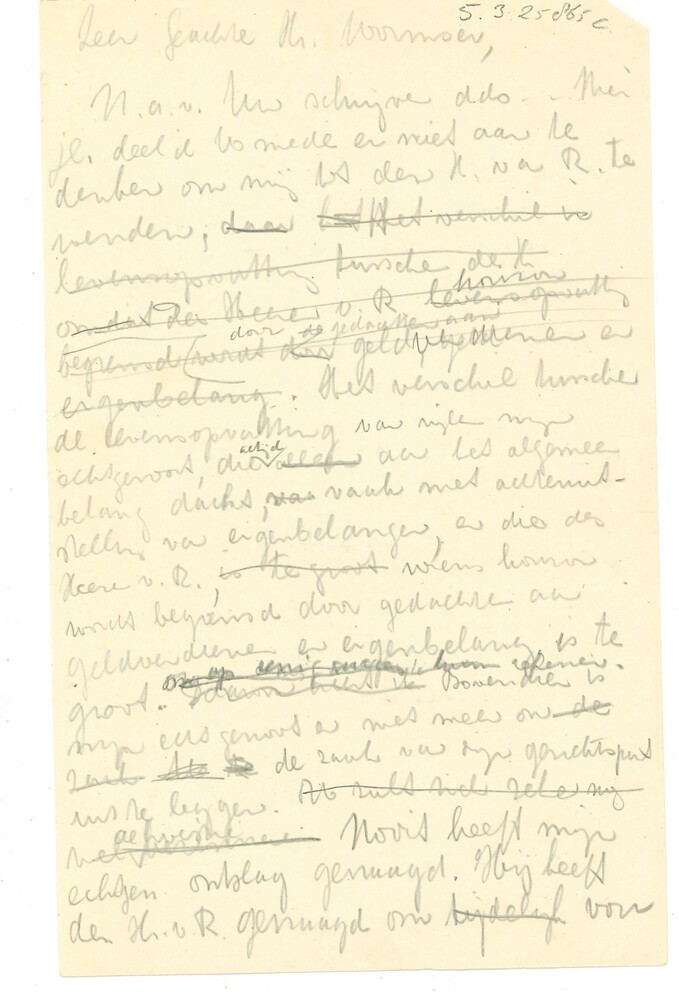 5.3.2586 c
Zeer Geachte Hr. Wormser,
N.a.v. Uw schrijve ddo -
je. deel ik U mede er niet aan te
denken om mij tot den H. va R. te
wenden, daar het Het verschil in
levensopvatting tussche de H
omdat den Heere v. R levensopvatting
horizon
begrensd wordt door geldverdienen en
door de gedachten aan
eigenbelang. Het verschil tussche
de levensopvatting van wijle mijn
echtgenoot, die alleen aan het algemeen
altijd
belang dacht, vaak met achteruit-
stelling van eigenbelangen, en die des
Heere v. R., is te groot wiens horizon
wordt begrensd door gedachte aan
geldverdienen en eigenbelang is te
groot. Bovendien is
mijn echtgenoot er niet meer om de
zaak de zaak van zijn gezichtspunt
uit te leggen.
Nooit heeft mijn
echtgen ontslag gevraagd. Hij heeft
den Hr. v. R. gevraagd om tijdelijk voor